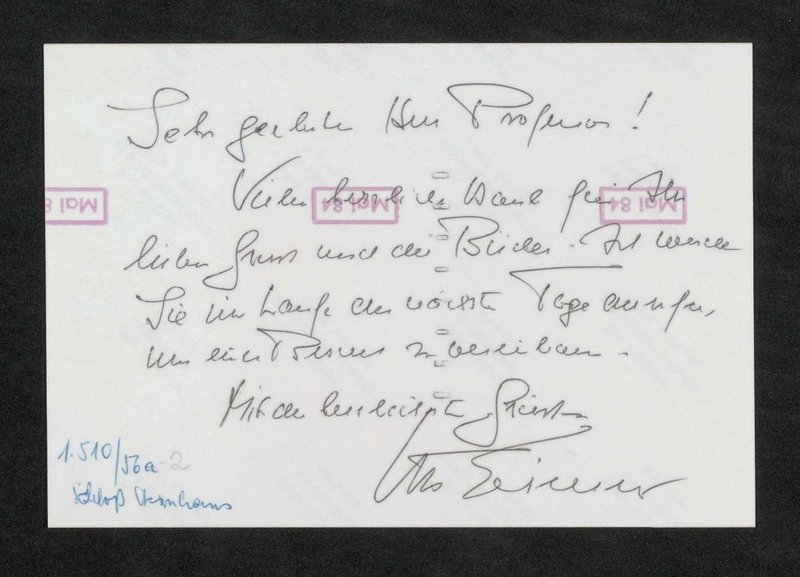 Sehr geehrter Herr Professor!
Vielen herzlichen Dank für Ihr
lieben Gruss und die Bücher. Ich werde
Sie im Laufe der nächsten Tage anrufen,
um einen Besuch zu vereinbaren.
Mit den herzlichsten Grüssen
Mai 84
Mai 84
Mai 84
1.510/56a-2
Schloß